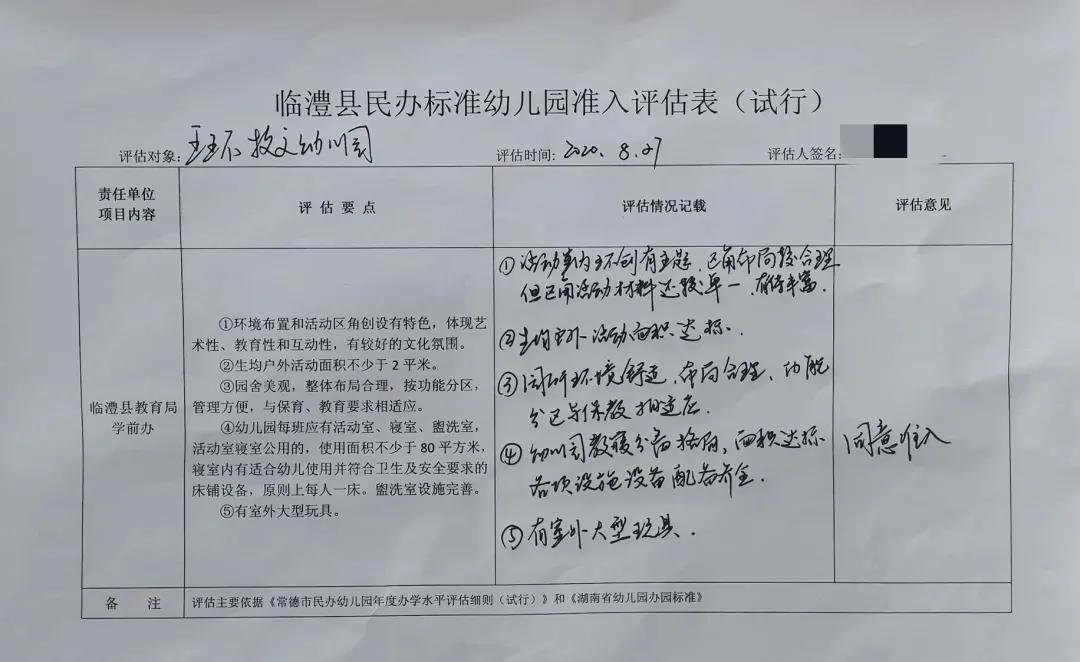 临澧县民办标准幼儿园准入评估表（试行）
评估对象： 幼儿园 评估时间：2020.8.27 评估人签名：
责任单位
项目内容
评 估 要 点
评估情况记载
评估意见
临澧县教育局
学前办
①环境布置和活动区角创设有特色，体现艺
术性、教育性和互动性，有较好的文化氛围。
②生均户外活动面积不少于2平米。
③园舍美观，整体布局合理，按功能分区，
管理方便，与保育、教育要求相适应。
④幼儿园每班应有活动室、寝室、盥洗室，
活动室寝室公用的，使用面积不少于80平方米，
寝室内有适合幼儿使用并符合卫生及安全要求的
床铺设备，原则上每人一床。盥洗室设施完善。
⑤有室外大型玩具。
①活动室内环创有主题，区角布局较合理
但区角活动材料还较单一，有待丰富.
②生均室外活动面积达标.
③园所环境舒适，布局合理、功能
分区与保教相适应.
④幼儿园教寝分 ，面积达标
各项设施设备配备齐全.
⑤有室外大型玩具.
同意准入
备 注
评估主要依据《常德市民办幼儿园年度办学水平评估细则（试行）》和《湖南省幼儿园办园标准》